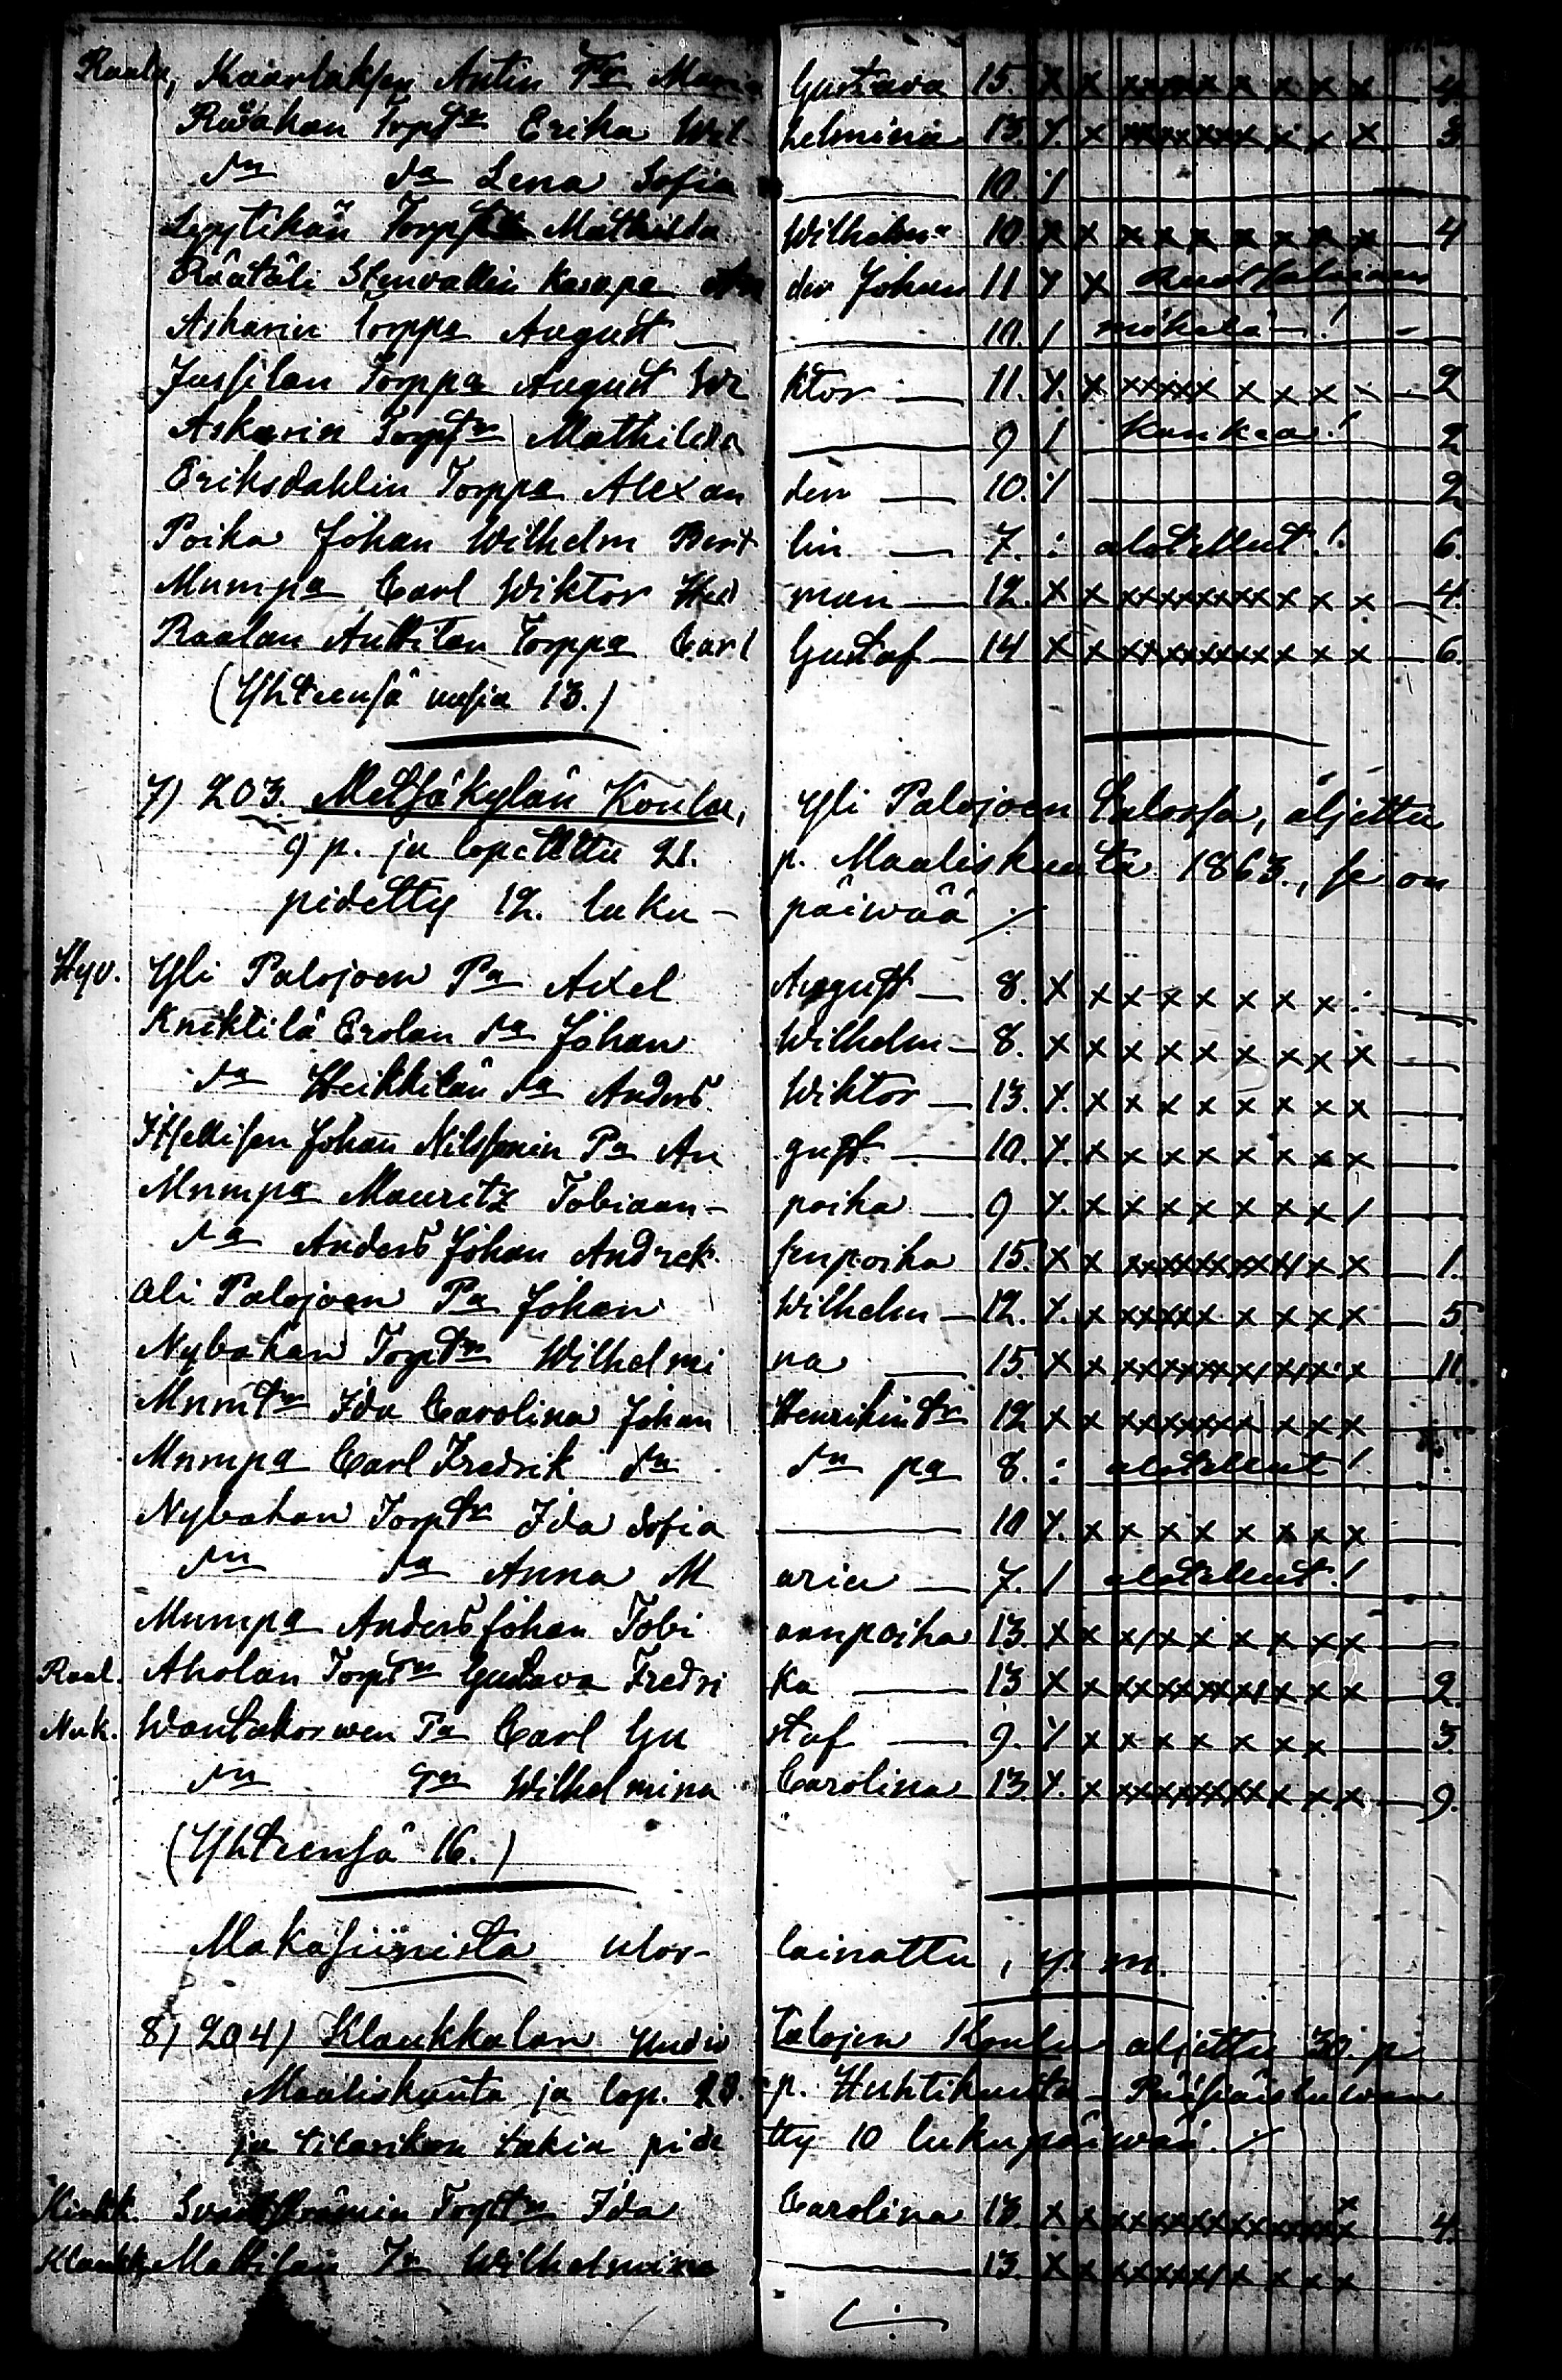 Raala, Kaarlaksen Antin Tr Maria Gustava 15. x x xxxxx x x x x x — 4.
Torptr Erika Wilhelmina 13. x x xxxxxxx x x x 3
dn da Lena Sofia — 10. /
Lyytikän Mathilda Wilhelmi 10 x x x x x x x x x — 4
Räätäli Stenvallin Kaarpa Ander Johan 11 x x
Askarin Torppa August — 10. / !
Jussilan Torppa August Wiktor — 11. x. x xxxxx x x x x — 2
Askarin Torptr Mathilda — 9 / ! 2
Eriksdahlin Torppa Alexander — 10. / — 2
Poika Johan Wilhelm Berglin — 7. : alotellut! 6.
Mnmpa Carl Wiktor Hedman — 12. x x xxxxxxxx x x x — 4.
Raalan Anttilan Torppa Carl Gustaf — 14 x x xxxxxxxx x x x — 6.
(Yhteensä uusia 13.)
7) 203. Metsäkylän Koulu, Yli Palojoen talossa, aljettu
9 p. ja lopetettu 21. p. Maaliskuuta 1863., se on
pidetty 12. luku-päiwää ./.
Hyv. Yli Palojoen Pa Axel August — 8. x x x x x x x x : —
Knektilä Erolan da Johan Wilhelm — 8. x x x x x x x x x —
da Heikkilän da Anders Wiktor — 13. x. x x x x x x x x —
Itsellisen Johan Nilssonin Pa August — 10. x. x x x x x x x x —
Mnmpa Mauritz Tobiaan-poika — 9 x. x x x x x x x / —
da Anders Johan Andreksenpoika 15. x x xxxxxxxxx x x — 1.
Ali Palojoen Pa Johan Wilhelm — 12. x. x xxxxx x x x x — 5
Nybakan Torptr Wilhelmina — 15. x x xxxxxxxxxxx x — 11.
Mnmtr Ida Carolina Johan Henrikin tr 12 x x xxxxxxx x x x —
Mnmpa Carl Fredrik dn dn pa 8. : alotellut!
Nybakan Torptr Ida Sofia — 10 x. x x x x x x x x —
dn da Anna Maria — 7. / alotellut!
Mnmpa Anders Johan Tobiaanpoika 13. x x x x x x x x x —
Raal. Aholan Torptr Gustava Fredrika — 13 x x xxxxxxxx x x x — 2.
Nuk. Wantakorwen Pa Carl Gustaf — 9. x x x x x x x x — 3.
dn Tr Wilhelmina Carolina 13 x. x xxxxxxxx x x x — 9.
(Yhteensä 16.)
Makasiinista ulos-lainattu, y. m.
8) 204) Klaukkalan Uudis talojen Koulu aljettu 30 p
Maaliskuuta ja lop. p. Huhtikuuta
ja tilaisikan takia pidetty 10 lukupäiwää. ./.
Kirkk. Torptr Ida Carolina 13. x x xxxxxxxxxxxx 4.
Klaukk. Mattilan Tr Wilhelmina — 13 x x xxxxxxx x x x x